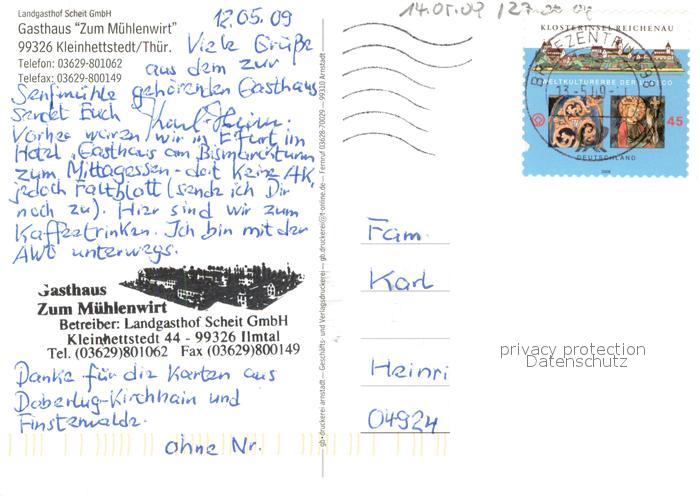 Landgasthof Scheit GmbH
Gasthaus "Zum Mühlenwirt"
99326 Kleinhettstedt/Thür.
Telefon: 03629-801062
Telefax: 03629-800149
12.05.09
Viele Grüße
aus dem zur
Senfmühle gehörenden Gasthaus
sendet Euch Karl-Heinz.
Vorher waren wir in Erfurt im
Hotel „Gasthaus am Bismarckturm
zum Mittagessen - dort keine AK,
jedoch Faltblatt (sende ich Dir
noch zu). Hier sind wir zum
Kaffeetrinken. Ich bin mit der
AWO unterwegs.
Gasthaus
Zum Mühlenwirt
Betreiber: Landgasthof Scheit GmbH
Kleinhettstedt 44 - 99326 Ilmtal
Tel. (03629)801062 Fax (03629)800149
Danke für die Karten aus
Doberlug-Kirchhain und
Finsterwalde.
ohne Nr.
gb druckerei arnstadt — Geschäfts- und Verlagsdruckerei — gb.druckerei@t-online.de — Fernruf 03628-70029 — 99310 Arnstadt
14.05.09
KLOSTERINSEL REICHENAU
WELTKULTURERBE DER
45
DEUTSCHLAND
BRIEFZENTRUM
13.-5.09
Fam.
Karl
Heinri
04924
privacy protection
Datenschutz